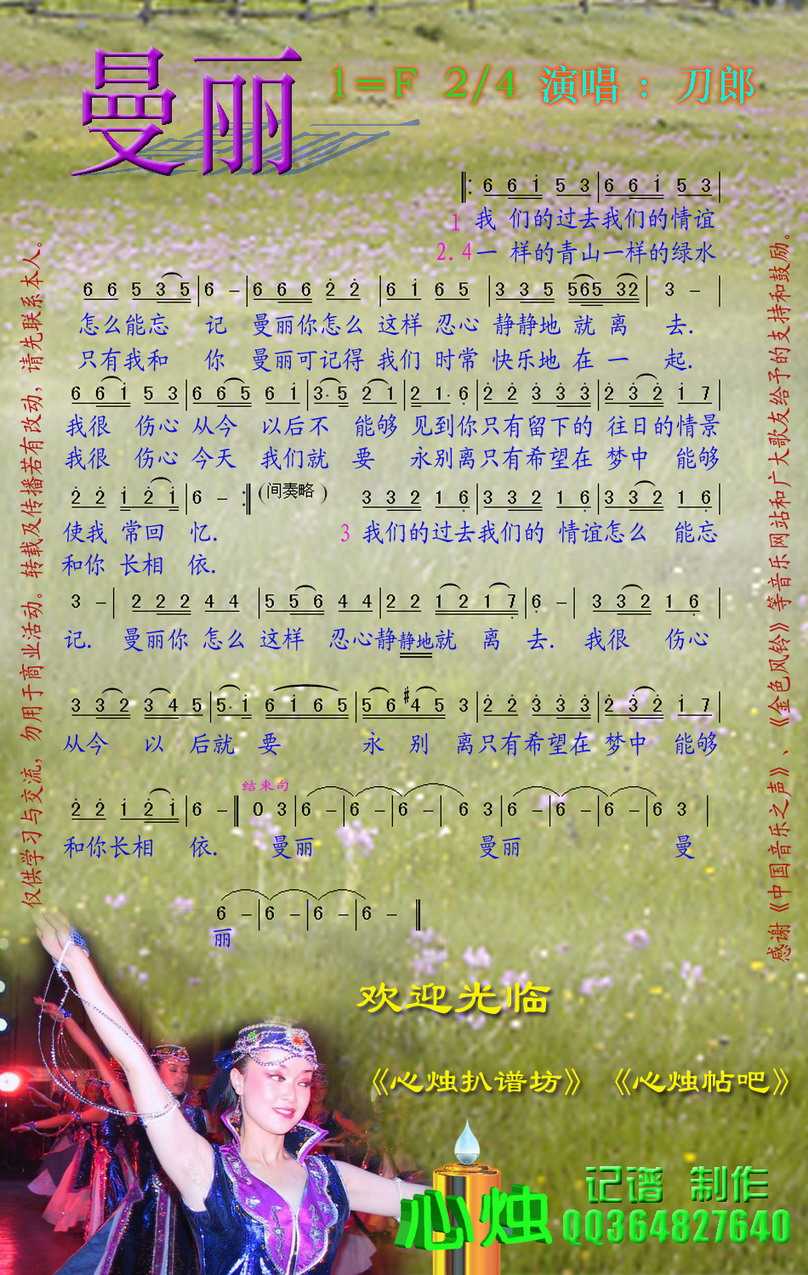 曼丽
1=F 2/4 演唱：刀郎
‖: 6 6 i 5 3 | 6 6 i 5 3 |
1 我 们的过去我们的情谊
2.4 一 样的青山一样的绿水
6 6 5 3 5 | 6 － | 6 6 6 2 2 | 6 i 6 5 | 3 3 5 565 32 | 3 － |
怎么能忘 记 曼丽你怎么 这样 忍心 静静地 就 离 去.
只有我和 你 曼丽可记得 我们 时常 快乐地 在 一 起.
6 6 i 5 3 | 6 6 5 6 i | 3· 5 2 1 | 2 1· 6 | 2 2 3 3 3 | 2 3 2 i 7 |
我很 伤心 从今 以后不 能够 见到你只有留下的 往日的情景
我很 伤心 今天 我们就 要 永别离只有希望在 梦中 能够
2 2 i 2 i | 6 － :‖ (间奏略) 3 3 2 1 6 | 3 3 2 1 6 | 3 3 2 1 6 |
使我 常回 忆. 3 我们的过去我们的 情谊怎么 能忘
和你 长相 依.
3 － | 2 2 2 4 4 | 5 5 6 4 4 | 2 2 1 2 1 7 | 6 － | 3 3 2 1 6 |
记. 曼丽你 怎么 这样 忍心静静地就 离 去. 我很 伤心
3 3 2 3 4 5 | 5· i | 6 i 6 5 | 5 6 #4 5 3 | 2 2 3 3 3 | 2 3 2 i 7 |
从今 以 后就 要 永 别 离只有希望在 梦中 能够
结束句
2 2 i 2 i | 6 － ‖ 0 3 | 6 － | 6 － | 6 － | 6 3 | 6 － | 6 － | 6 － | 6 3 |
和你长相 依. 曼丽 曼丽 曼
6 － | 6 － | 6 － | 6 － ‖
丽
仅供学习与交流，勿用于商业活动。转载及传播若有改动，请先联系本人。
感谢《中国音乐之声》、《金色风铃》等音乐网站和广大歌友给予的支持和鼓励。
欢迎光临
《心烛扒谱坊》《心烛帖吧》
心烛
记谱 制作
QQ364827640